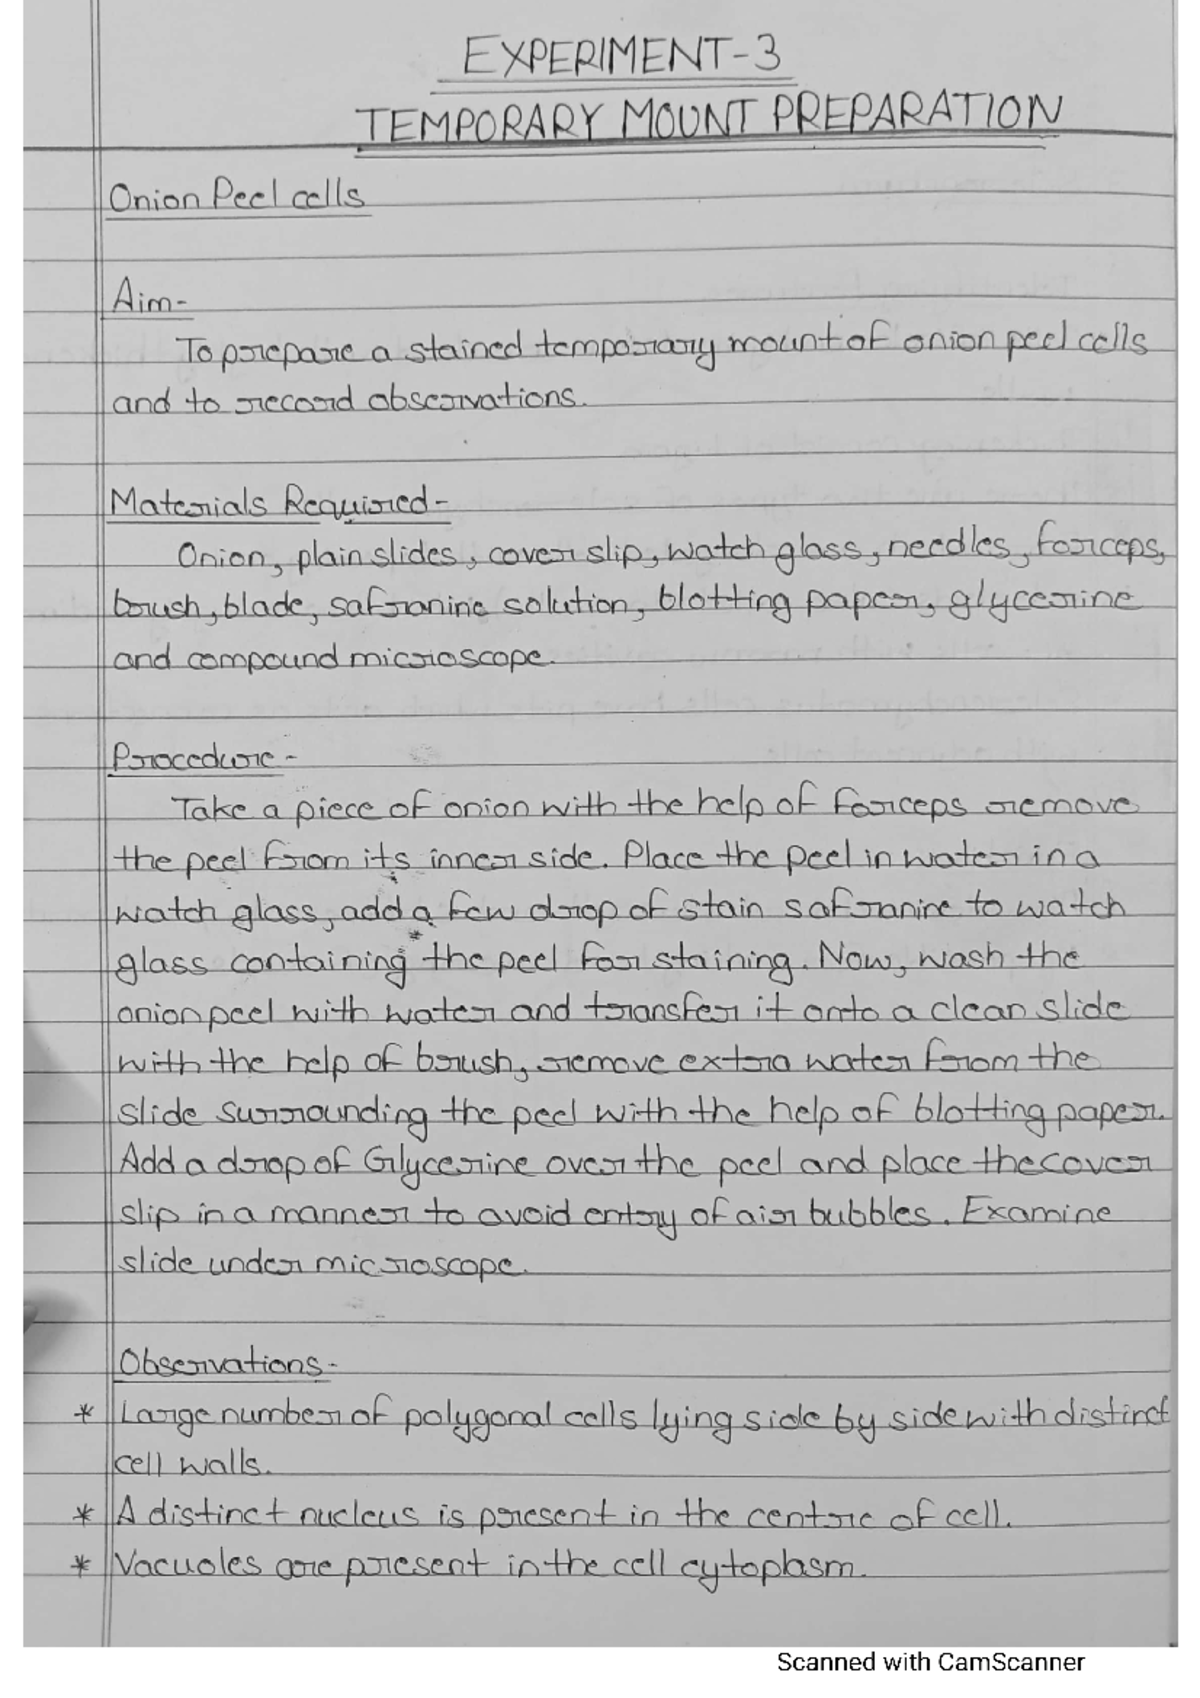 EXPERIMENT-3
TEMPORARY MOUNT PREPARATION
Onion Peel cells
Aim-
To prepare a stained temporary mount of onion peel cells
and to record observations.
Materials Required-
Onion, plain slides, cover slip, watch glass, needles, forceps,
brush, blade, safranine solution, blotting paper, glycerine
and compound microscope.
Procedure-
Take a piece of onion with the help of forceps remove
the peel from its inner side. Place the peel in water in a
watch glass, add a few drop of stain safranine to watch
glass containing the peel for staining. Now, wash the
onion peel with water and transfer it onto a clean slide
with the help of brush, remove extra water from the
slide surrounding the peel with the help of blotting paper.
Add a drop of Glycerine over the peel and place the cover
slip in a manner to avoid entry of air bubbles. Examine
slide under microscope.
Observations-
* Large number of polygonal cells lying side by side with distinct
cell walls.
* A distinct nucleus is present in the centre of cell.
* Vacuoles are present in the cell cytoplasm.
Scanned with CamScanner